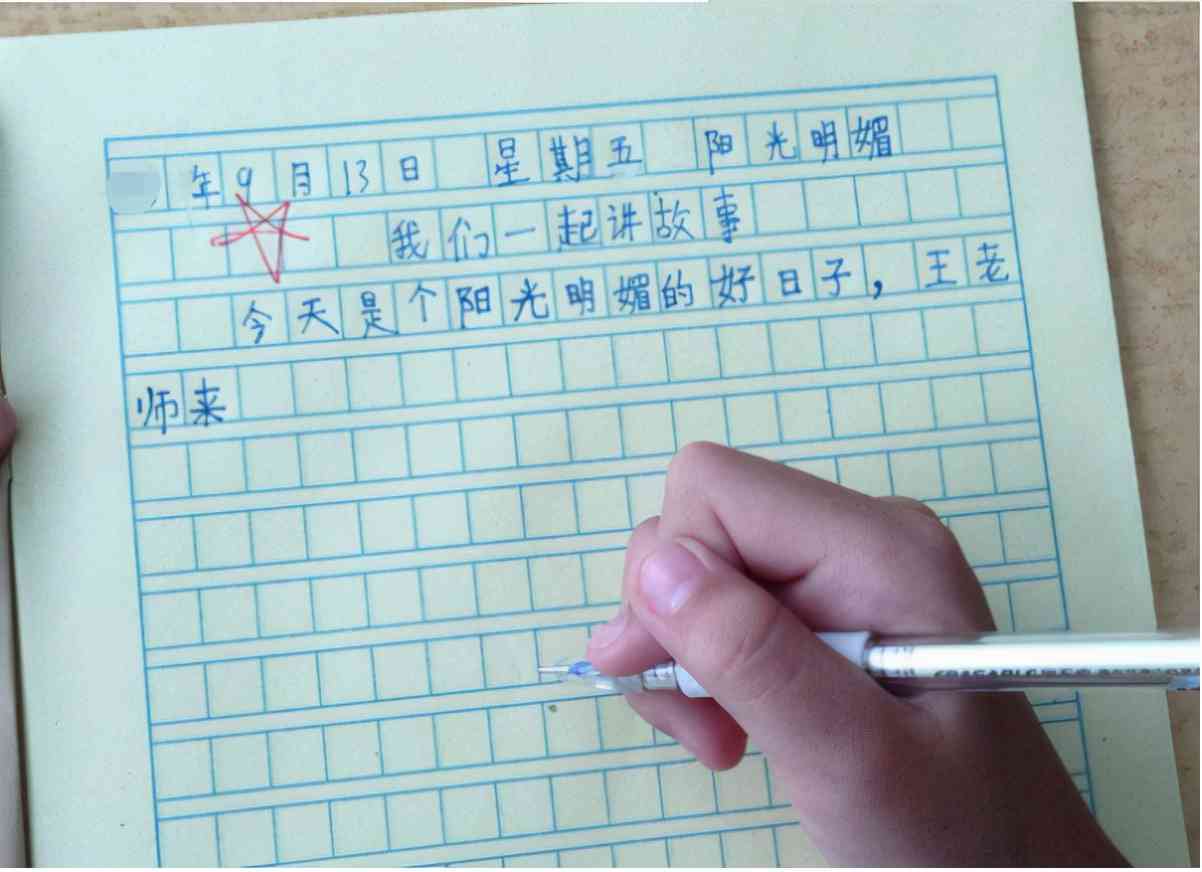 年9月13日 星期五 阳光明媚
我们一起讲故事
今天是个阳光明媚的好日子，王老
师来